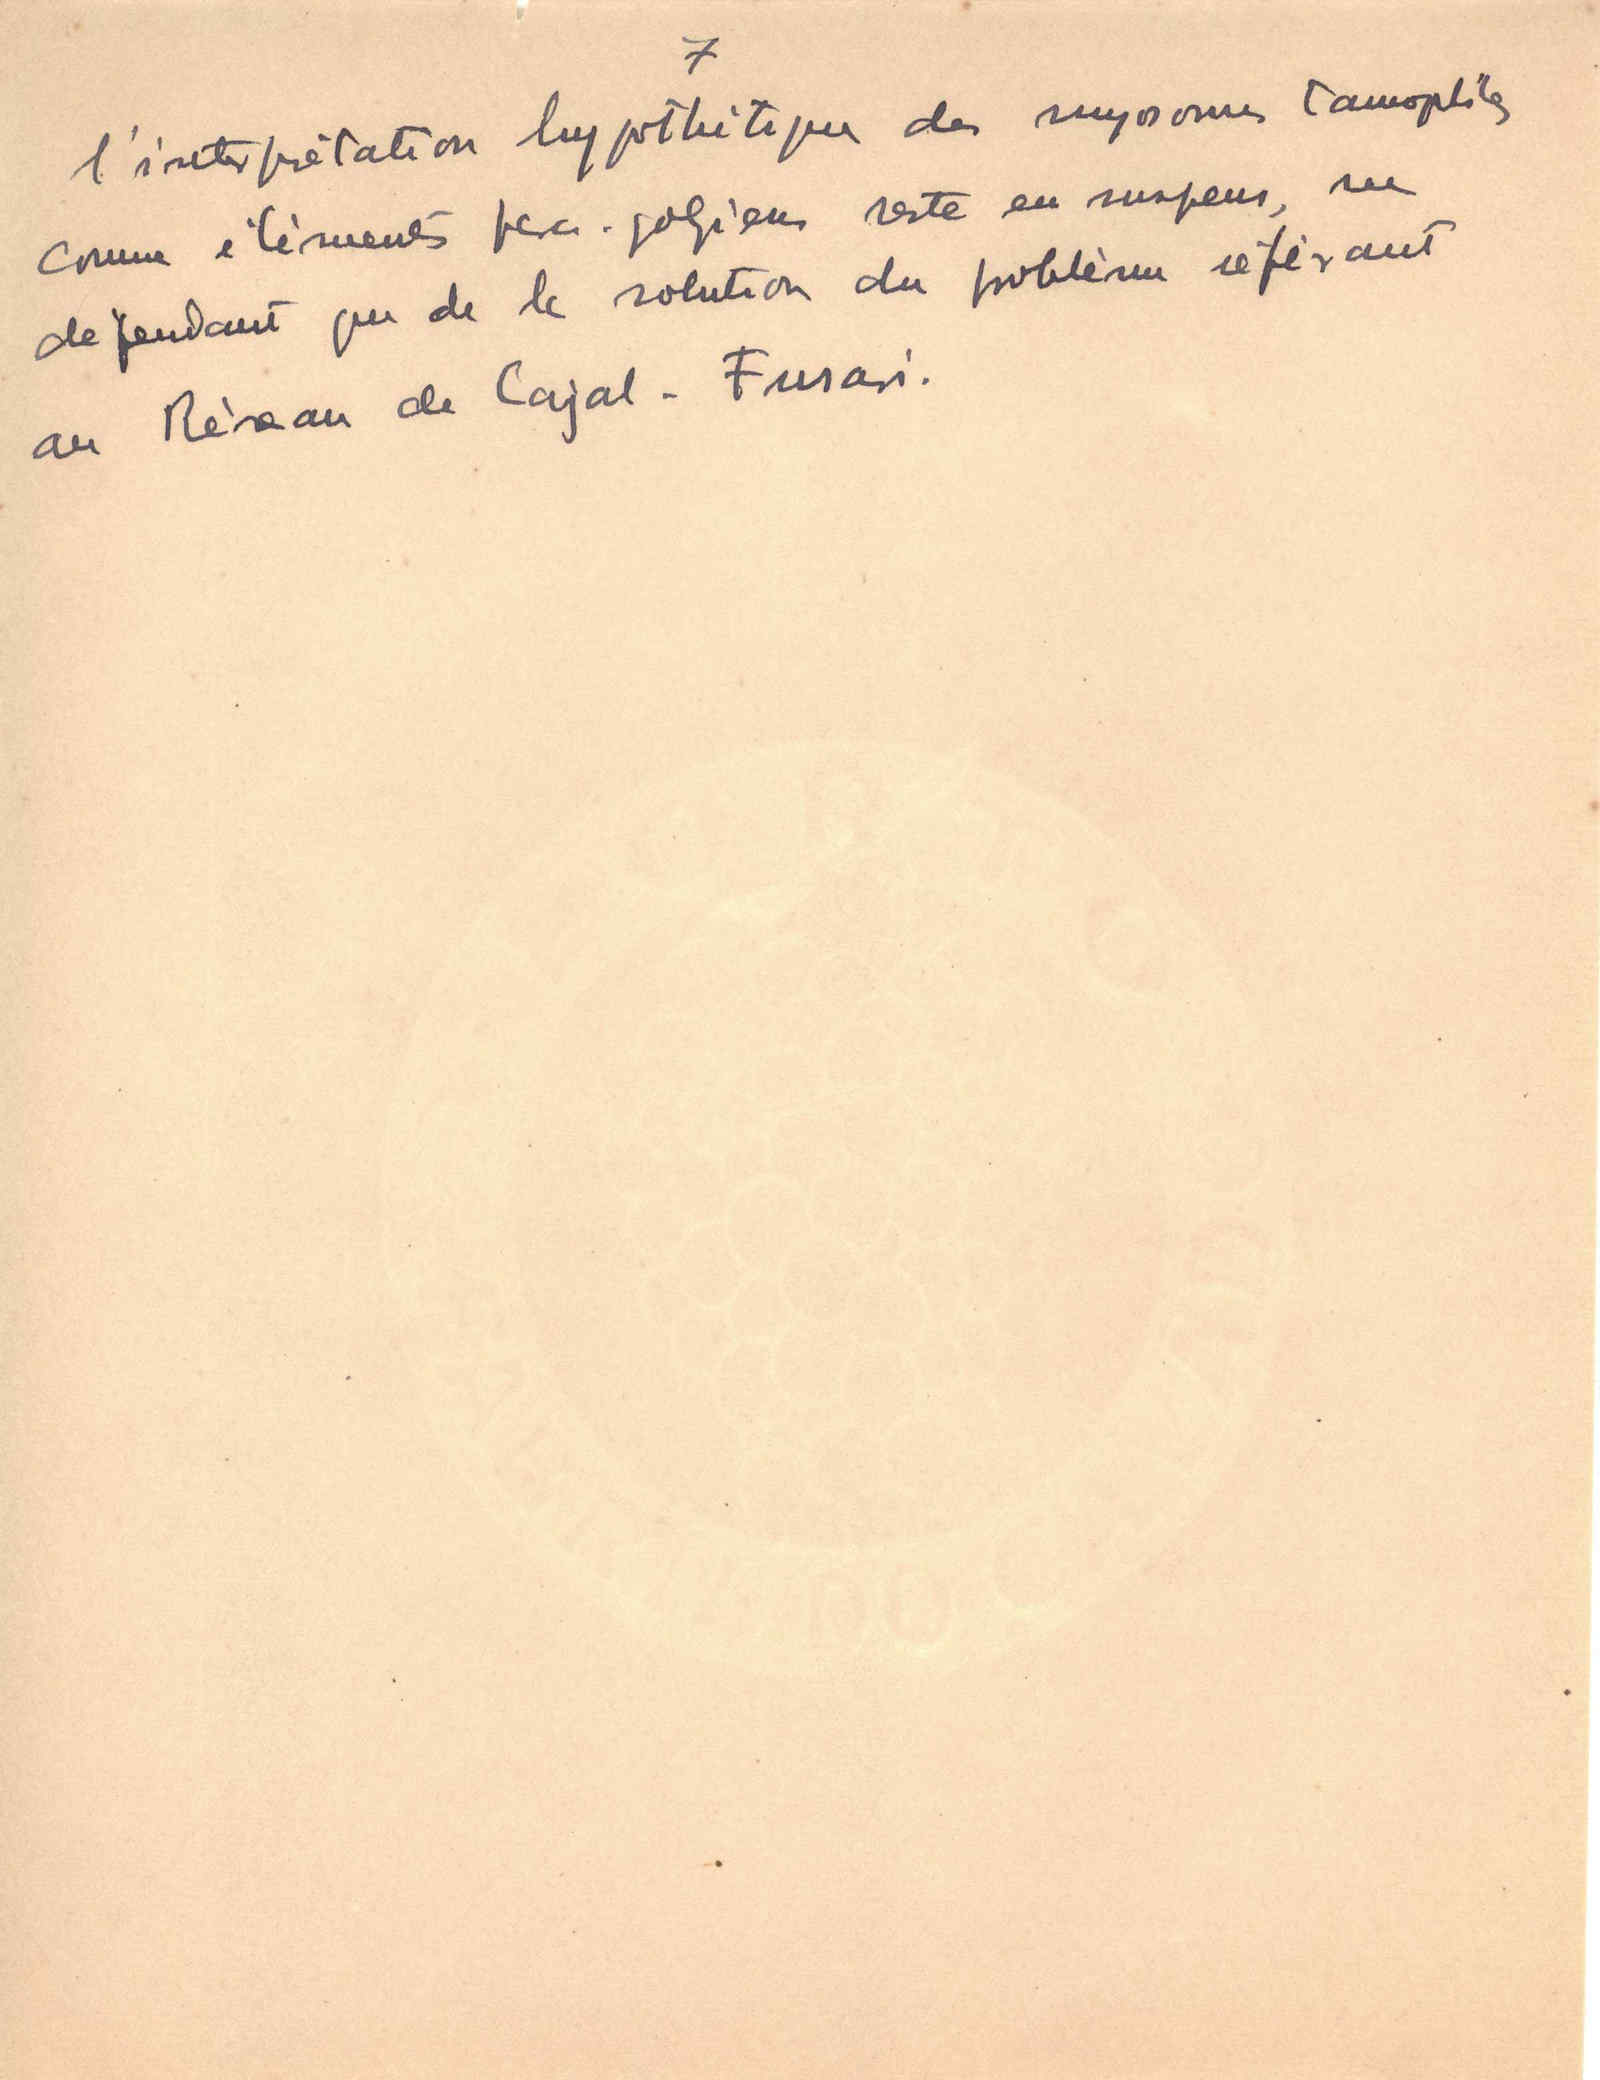 7
l'interprétation hypothétique des myosomes tannophiles
comme éléments para-golgiens reste en suspens, ne
dependant que de la solution du problème référant
au Réseau de Cajal-Fusari.